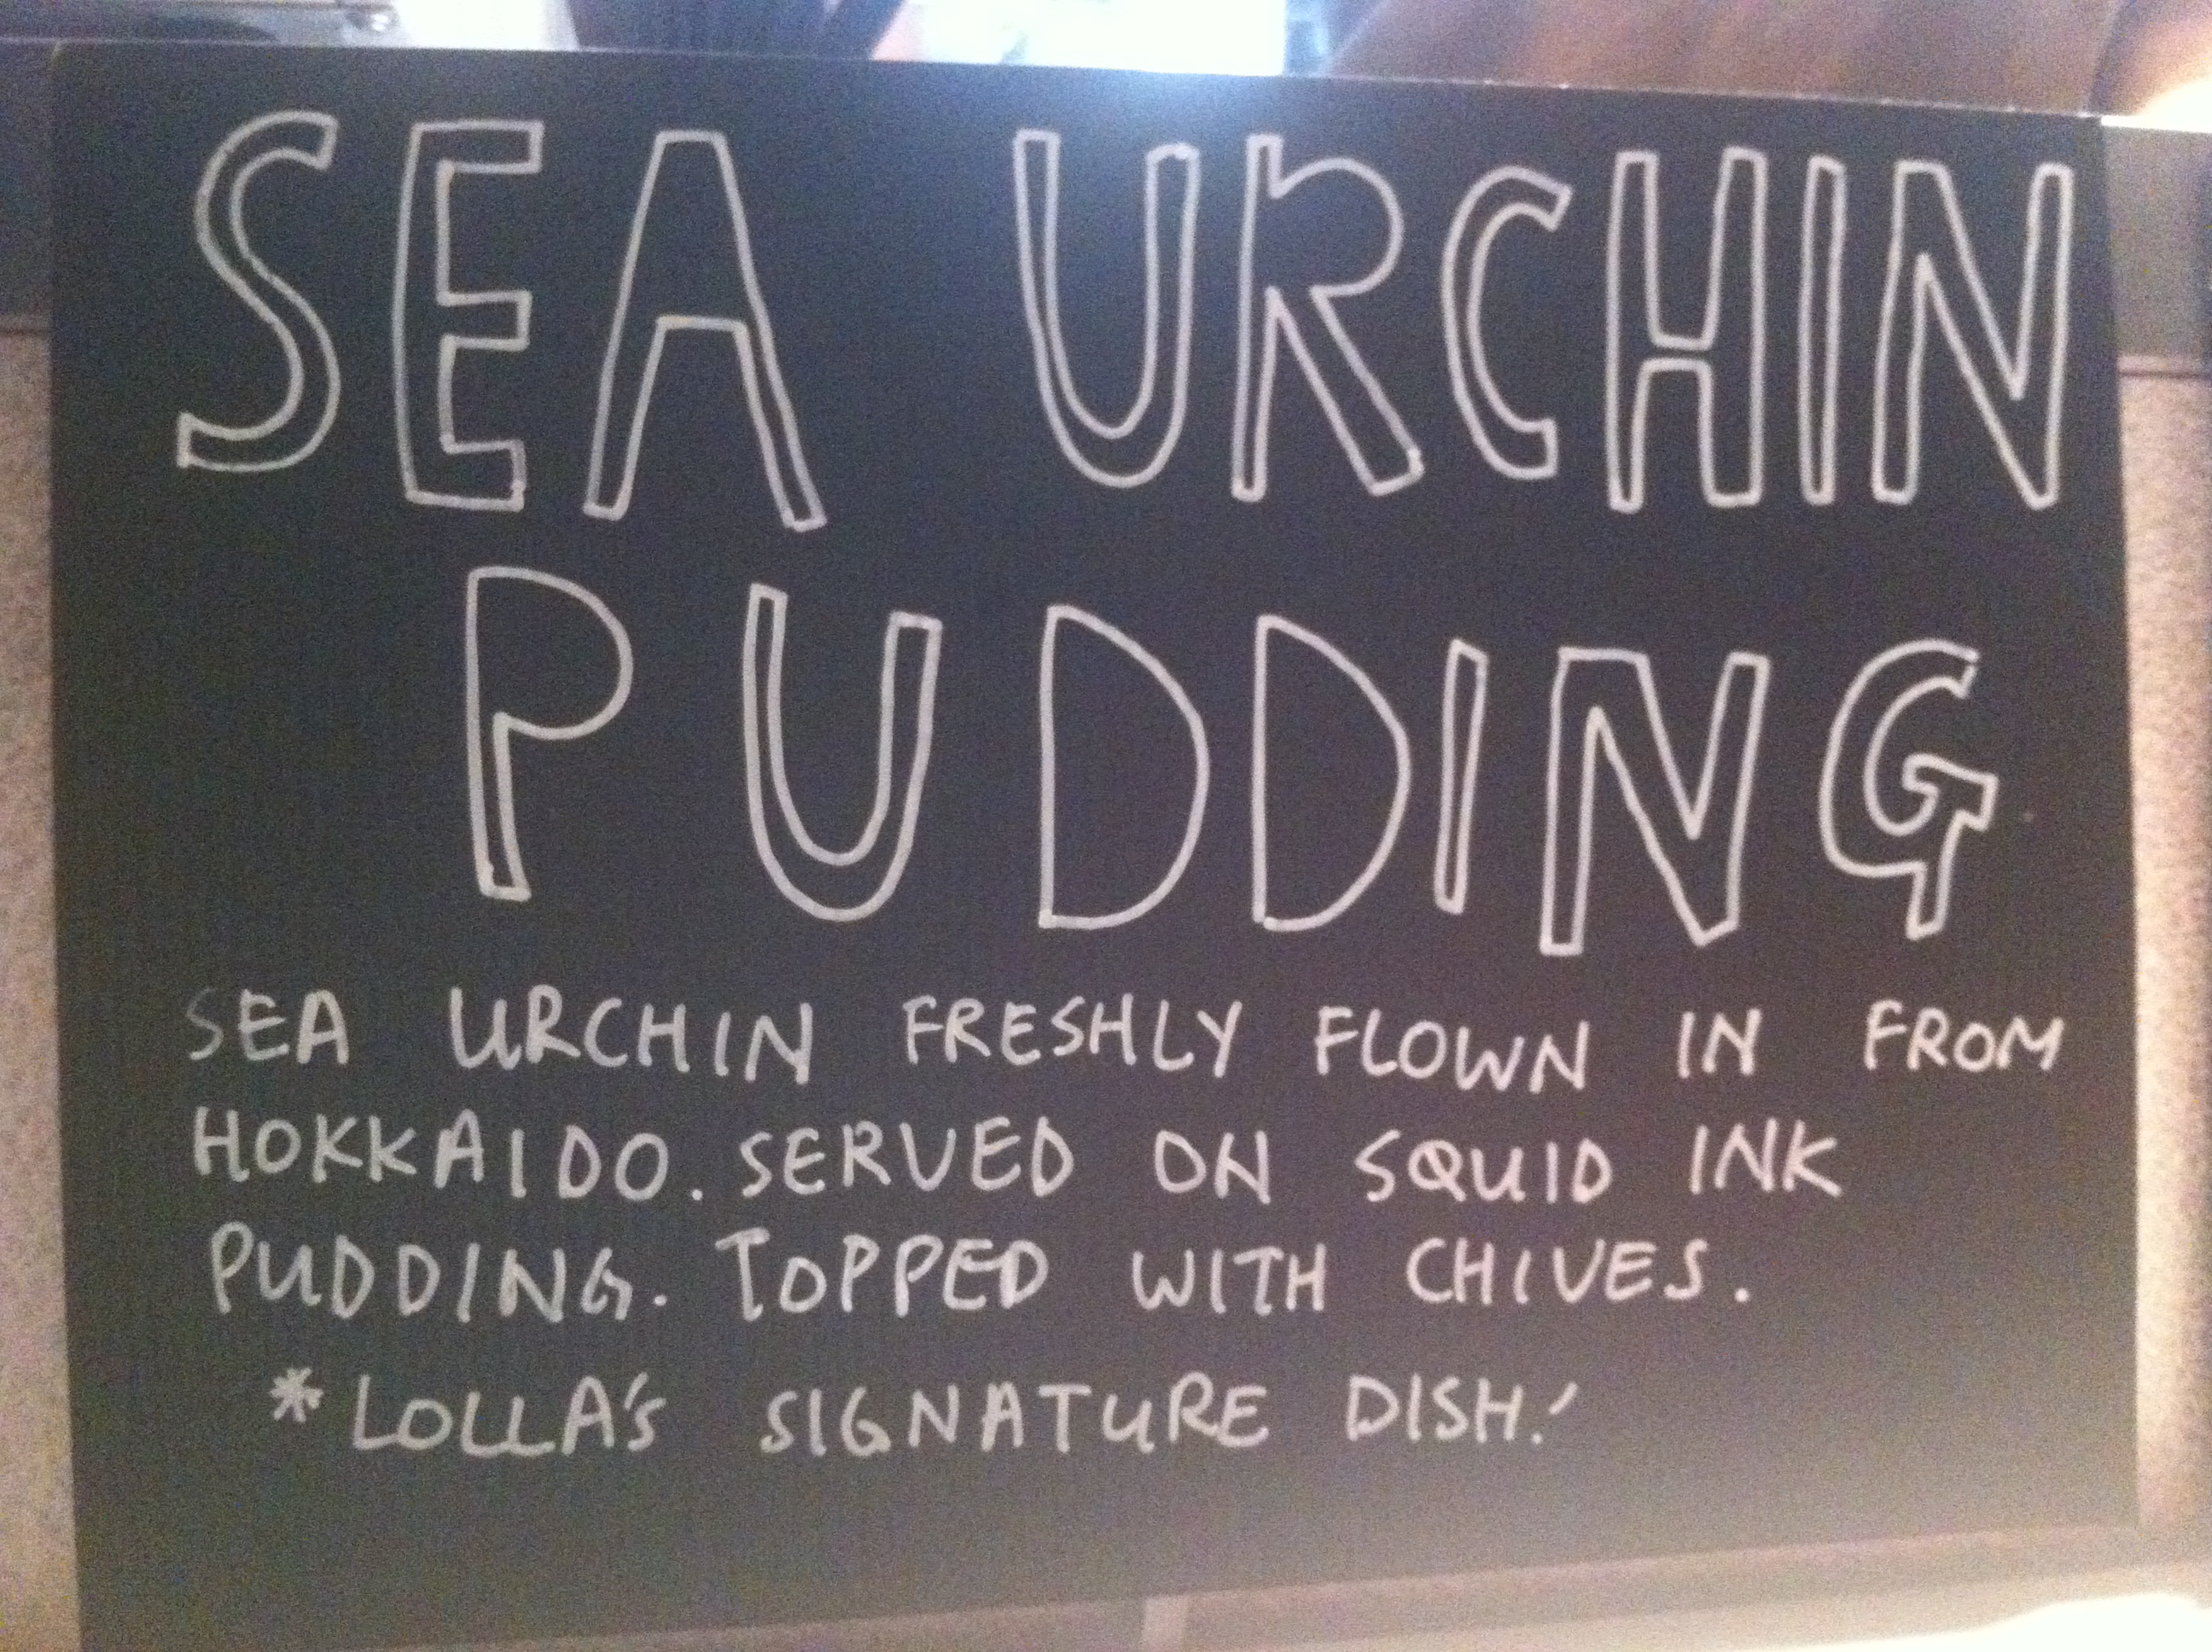 SEA URCHIN
PUDDING
SEA URCHIN FRESHLY FLOWN IN FROM
HOKKAIDO. SERVED ON SQUID INK
PUDDING. TOPPED WITH CHIVES.
*LOLLA'S SIGNATURE DISH!